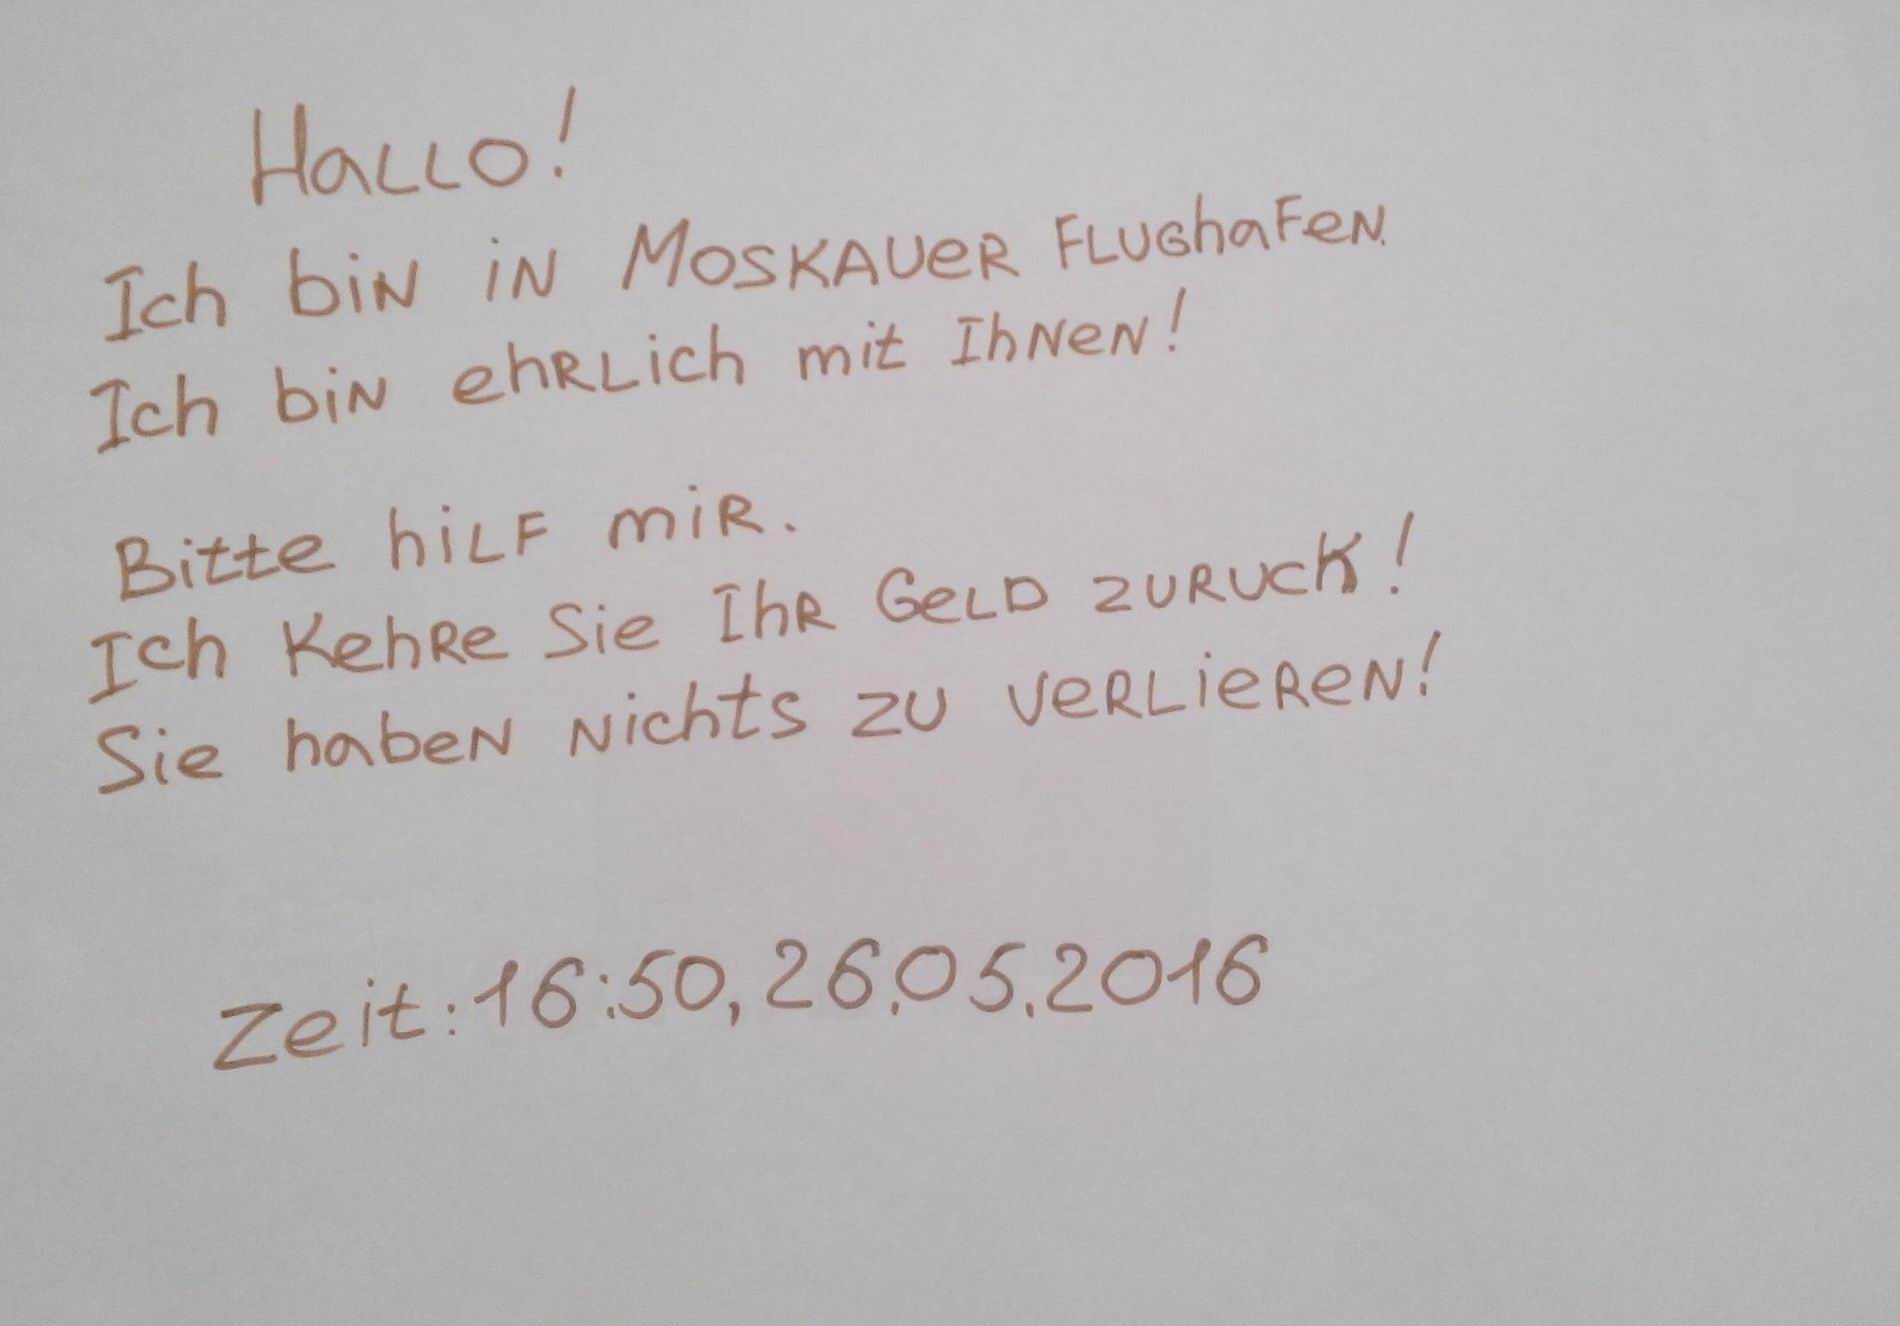 Hallo!
Ich bin in Moskauer Flughafen.
Ich bin ehrlich mit Ihnen!
Bitte hilf mir.
Ich kehre Sie Ihr Geld zuruck!
Sie haben nichts zu verlieren!
Zeit: 16:50, 26.05.2016